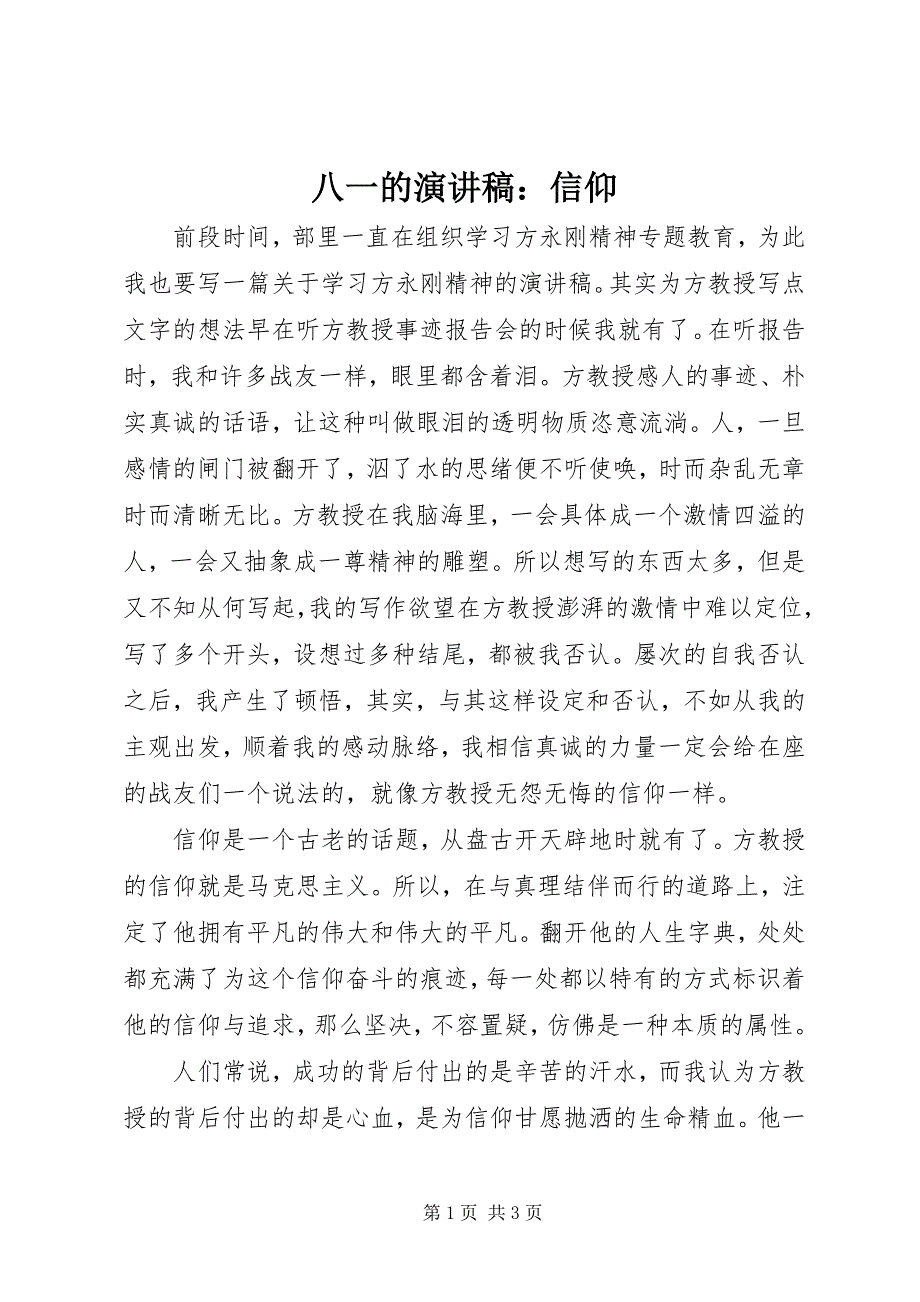 八一的演讲稿：信仰
前段时间，部里一直在组织学习方永刚精神专题教育，为此
我也要写一篇关于学习方永刚精神的演讲稿。其实为方教授写点
文字的想法早在听方教授事迹报告会的时候我就有了。在听报告
时，我和许多战友一样，眼里都含着泪。方教授感人的事迹、朴
实真诚的话语，让这种叫做眼泪的透明物质恣意流淌。人，一旦
感情的闸门被翻开了，泅了水的思绪便不听使唤，时而杂乱无章
时而清晰无比。方教授在我脑海里，一会具体成一个激情四溢的
人，一会又抽象成一尊精神的雕塑。所以想写的东西太多，但是
又不知从何写起，我的写作欲望在方教授澎湃的激情中难以定位，
写了多个开头，设想过多种结尾，都被我否认。屡次的自我否认
之后，我产生了顿悟，其实，与其这样设定和否认，不如从我的
主观出发，顺着我的感动脉络，我相信真诚的力量一定会给在座
的战友们一个说法的，就像方教授无怨无悔的信仰一样。
信仰是一个古老的话题，从盘古开天辟地时就有了。方教授
的信仰就是马克思主义。所以，在与真理结伴而行的道路上，注
定了他拥有平凡的伟大和伟大的平凡。翻开他的人生字典，处处
都充满了为这个信仰奋斗的痕迹，每一处都以特有的方式标识着
他的信仰与追求，那么坚决，不容置疑，仿佛是一种本质的属性。
人们常说，成功的背后付出的是辛苦的汗水，而我认为方教
授的背后付出的却是心血，是为信仰甘愿抛洒的生命精血。他一
第 1 页 共 3 页